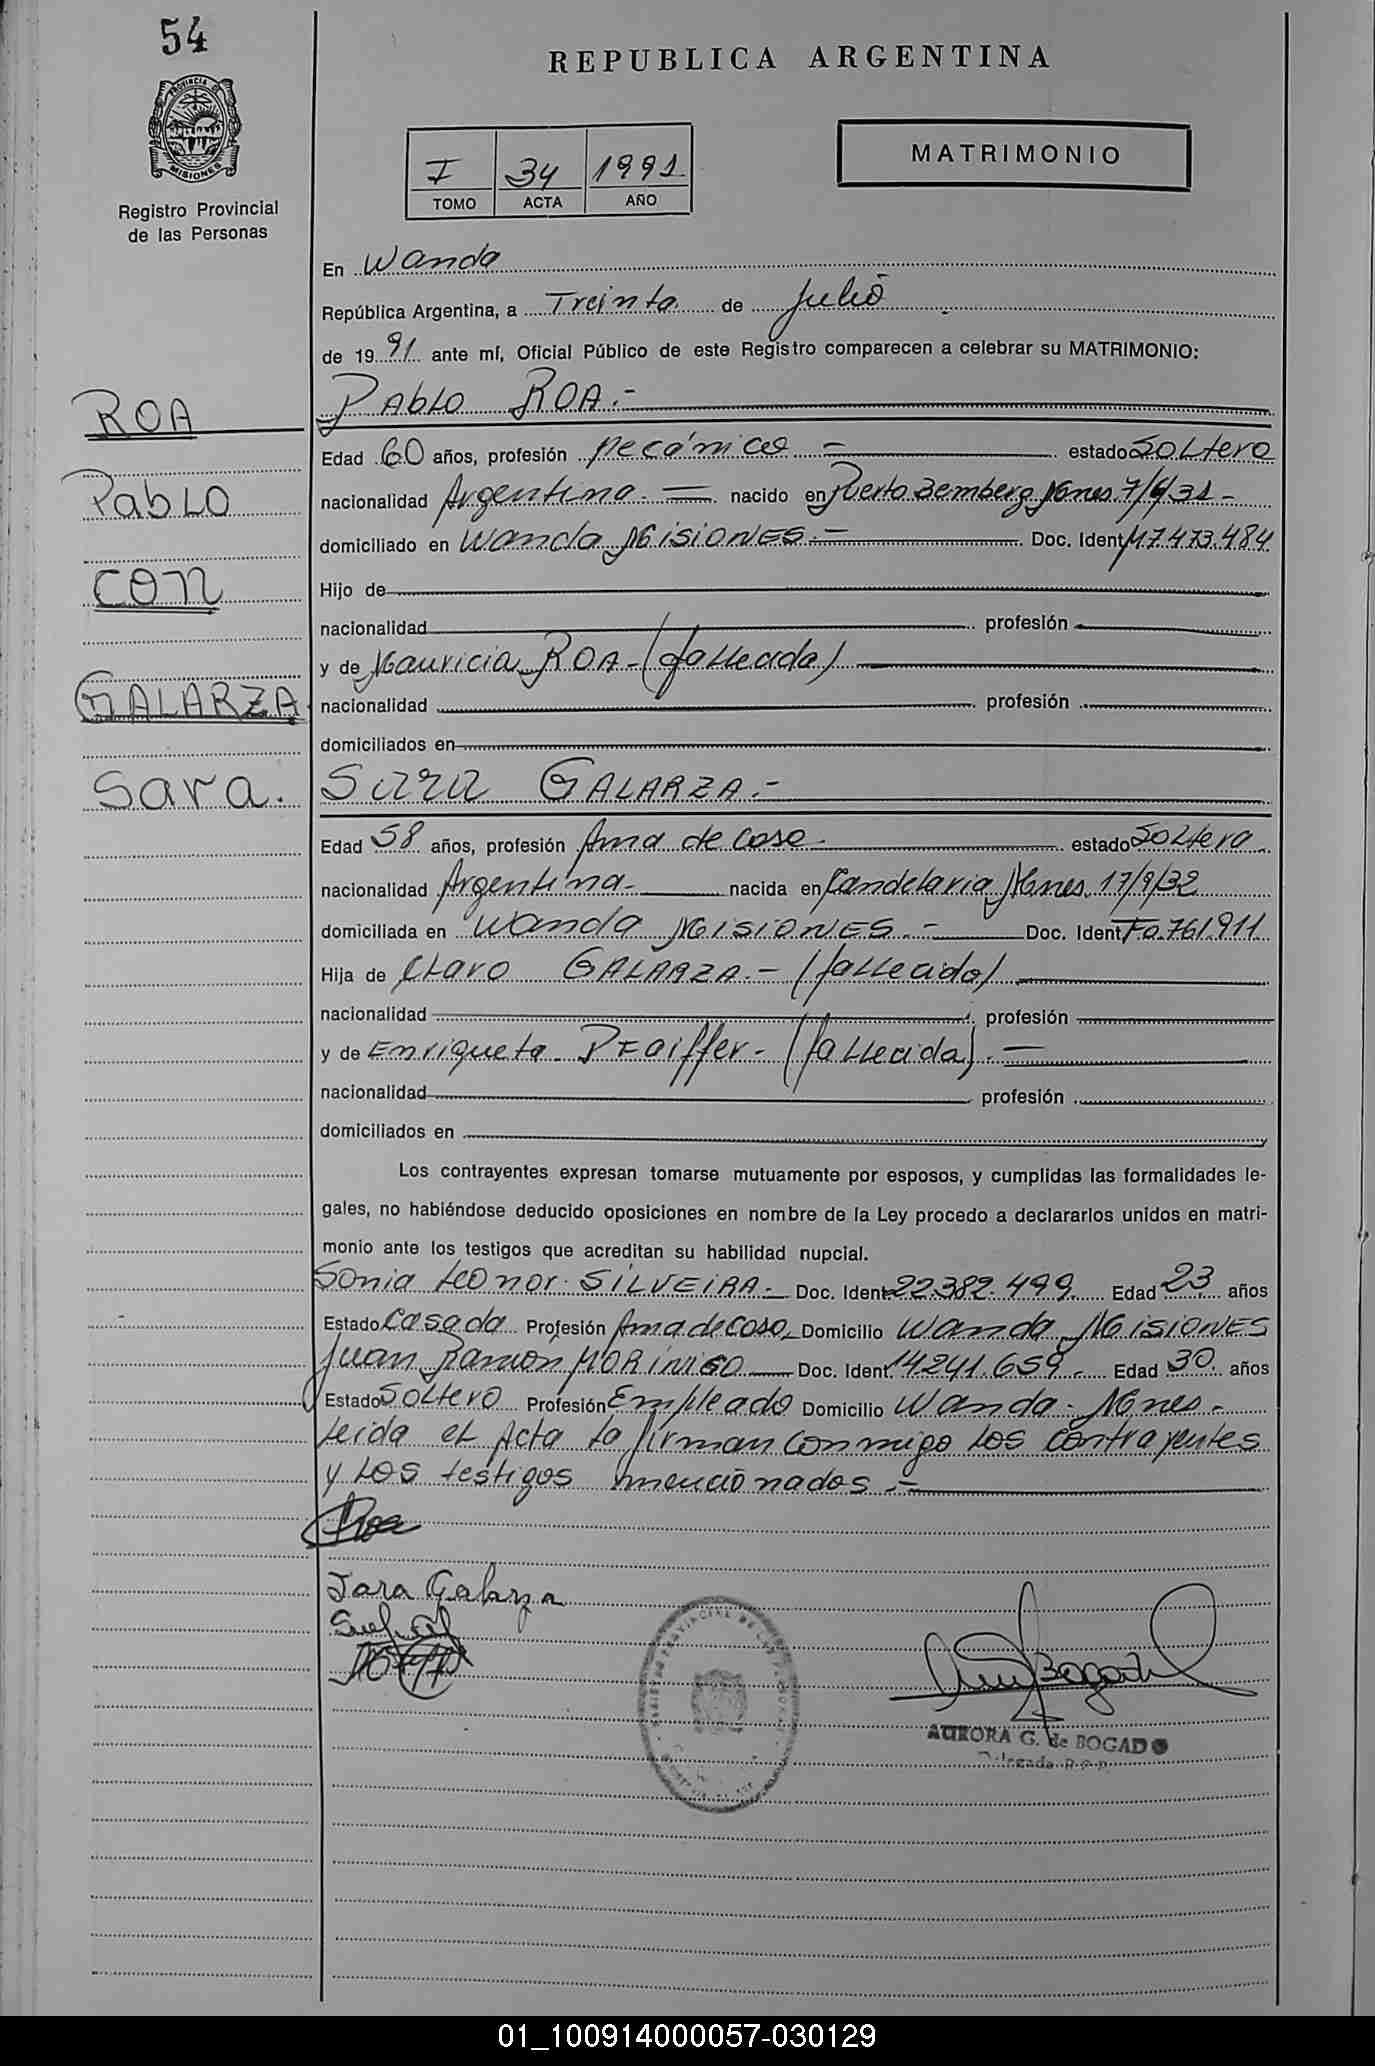 54
REPUBLICA ARGENTINA
PROVINCIA DE MISIONES
Registro Provincial
de las Personas
MATRIMONIO
I 34 1991
TOMO ACTA AÑO
En Wanda
República Argentina, a Treinta de Julio
de 1991 ante mí, Oficial Público de este Registro comparecen a celebrar su MATRIMONIO:
ROA
Pablo
CON
GALARZA
Sara.
Pablo ROA.-
Edad 60 años, profesión Mecánico - estado Soltero
nacionalidad Argentina.- nacido en Puerto Bemberg Mnes. 7/6/31-
domiciliado en Wanda Misiones.- Doc. Ident. M7.473.484
Hijo de
nacionalidad profesión
y de Mauricia ROA-(fallecida)
nacionalidad profesión
domiciliados en
Sara GALARZA.-
Edad 58 años, profesión Ama de casa estado Soltera
nacionalidad Argentina- nacida en Candelaria Mnes. 17/9/32
domiciliada en Wanda Misiones.- Doc. Ident. F0.761.911
Hija de Claro GALARZA.-(fallecido)
nacionalidad profesión
y de Enriqueta Pfaiffer-(fallecida).-
nacionalidad profesión
domiciliados en
Los contrayentes expresan tomarse mutuamente por esposos, y cumplidas las formalidades le-
gales, no habiéndose deducido oposiciones en nombre de la Ley procedo a declararlos unidos en matri-
monio ante los testigos que acreditan su habilidad nupcial.
Sonia Leonor SILVEIRA- Doc. Ident. 22.382.499. Edad 23 años
Estado Casada Profesión Ama de casa- Domicilio Wanda Misiones
Juan Ramon MORINIGO Doc. Ident. 14.241.659- Edad 30. años
Estado Soltero Profesión Empleado Domicilio Wanda- Mnes-
leida el Acta la firman conmigo los contrayentes
y los testigos mencionados.-
Roa
Sara Galarza
AURORA G. de BOGADO
Delegada R.P.P.
01_100914000057-030129